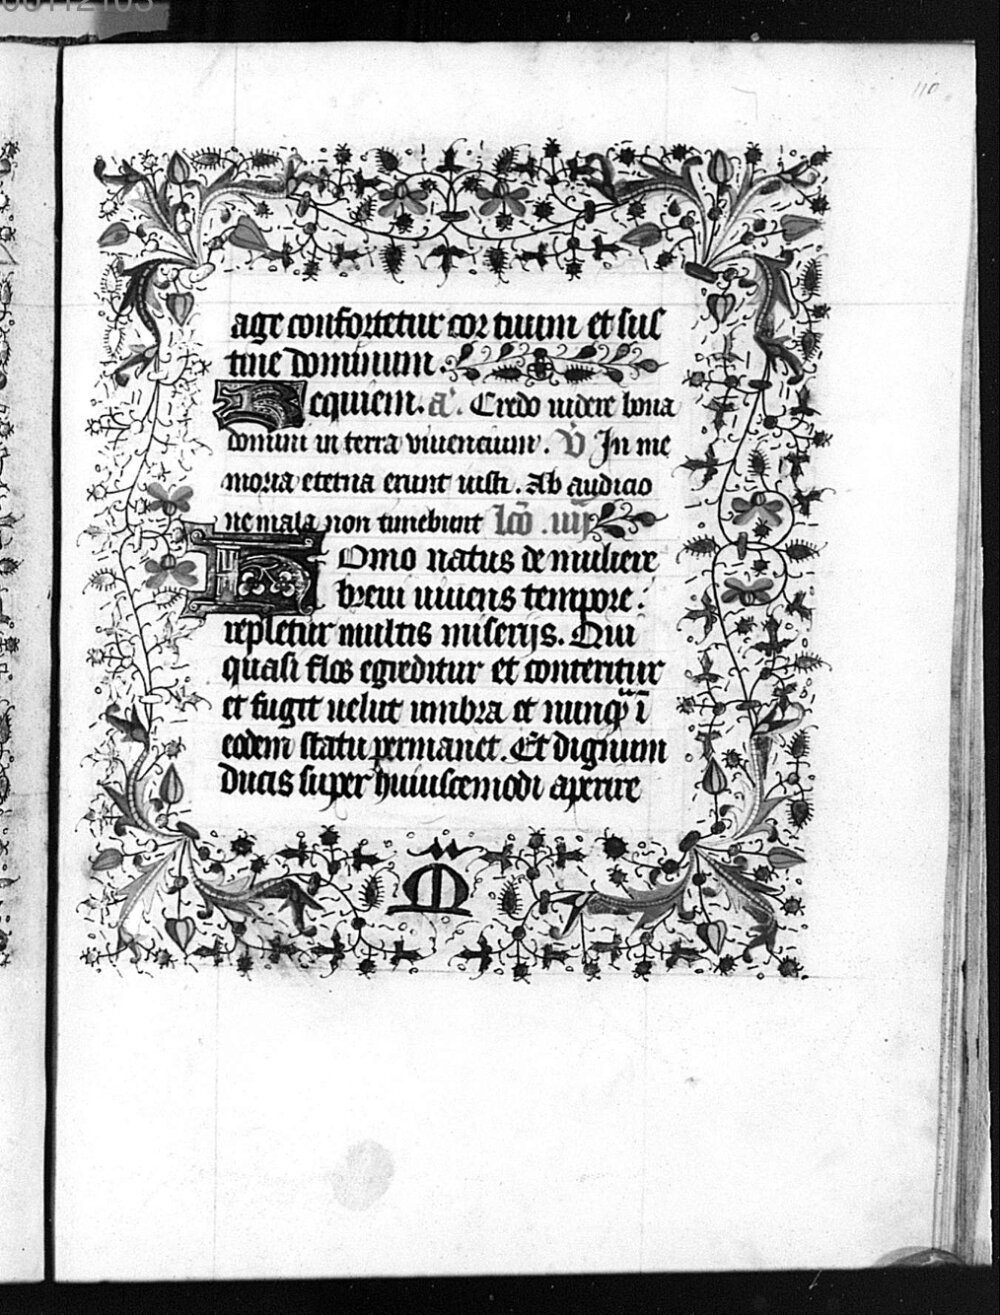 110
age confortetur cor tuum et sus
tine dominum.
Requiem. a. Credo videre bona
domini in terra viuencium. V In me
moria eterna erunt iusti. Ab audicio
ne mala non timebunt lcō .iiij
Homo natus de muliere
breui uiuens tempore:
repletur multis miserijs. Qui
quasi flos egreditur et conteritur
et fugit uelut umbra et nunqͣ ī
eodem statu permanet. Et dignum
ducis super huiuscemodi aperire
M